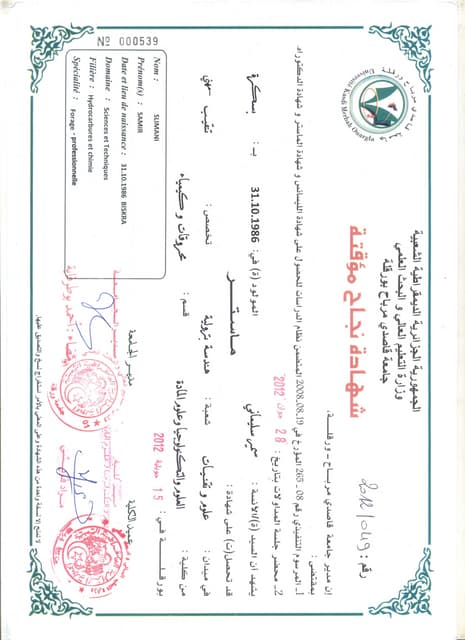 الجمهورية الجزائرية الديمقراطية الشعبية
وزارة التعليم العالي و البحث العلمي
جامعة قاصدي مرباح بورقلة
جامعة قاصدي مرباح ورقلة
Université Kasdi Merbah Ouargla
شهادة نجاح مؤقتة
رقم : 2012/049
إن مدير جامعة قاصدي مرباح - ورقلة :
بمقتضى :
1ـ المرسوم التنفيذي رقم 08 - 265 المؤرخ في 2008.08.19 المتضمن نظام الدراسات للحصول على شهادة الليسانس و شهادة الماستر و شهادة الدكتوراه.
2ـ محضر جلسة المداولات بتاريخ : 28 جوان 2012
يشهد ان السيد (ة)/الآنسة : سمير سليماني المولود (ة) في: 31.10.1986 بـ : بسكرة
قد تحصل(ت) على شهادة : ماستر
في ميدان : علوم و تقنيات شعبة : هندسة بترولية تخصص : تنقيب مهني
من كلية : العلوم والتكنولوجيا وعلوم المادة قسم : محروقات و كيمياء
بورقلة في : 15 جويلية 2012
عميد الكلية
مدير الجامعة
Nº 000539
Nom : SLIMANI
Prénom(s) : SAMIR
Date et lieu de naissance : 31.10.1986 BISKRA
Domaine : Sciences et Techniques
Filière : Hydrocarbures et chimie
Spécialité : Forage - professionnelle